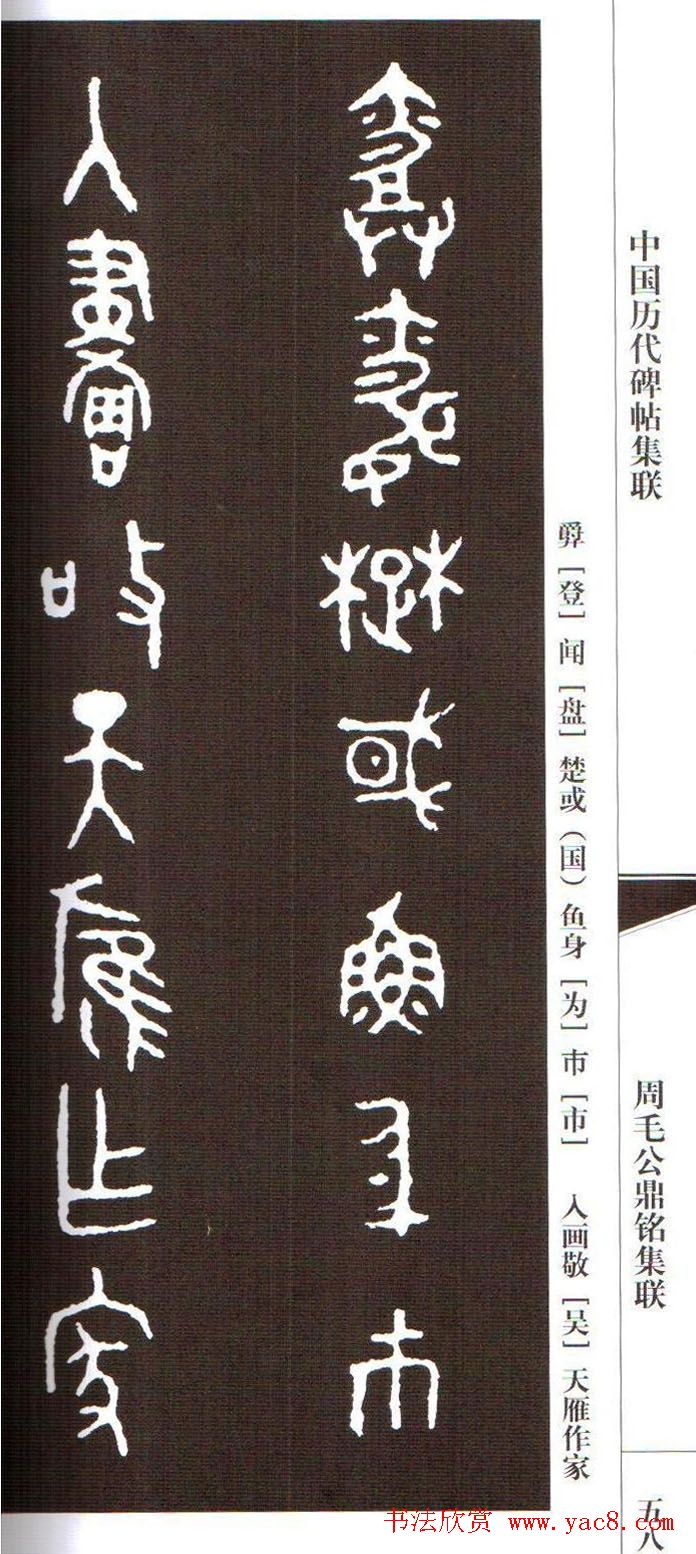 中国历代碑帖集联
周毛公鼎铭集联
五八
［登］闻［盘］楚或（国）鱼身［为］市［市］ 入画敬［吴］天雁作家
楚或魚身市
入畫天雁乍家
书法欣赏 www.yac8.com